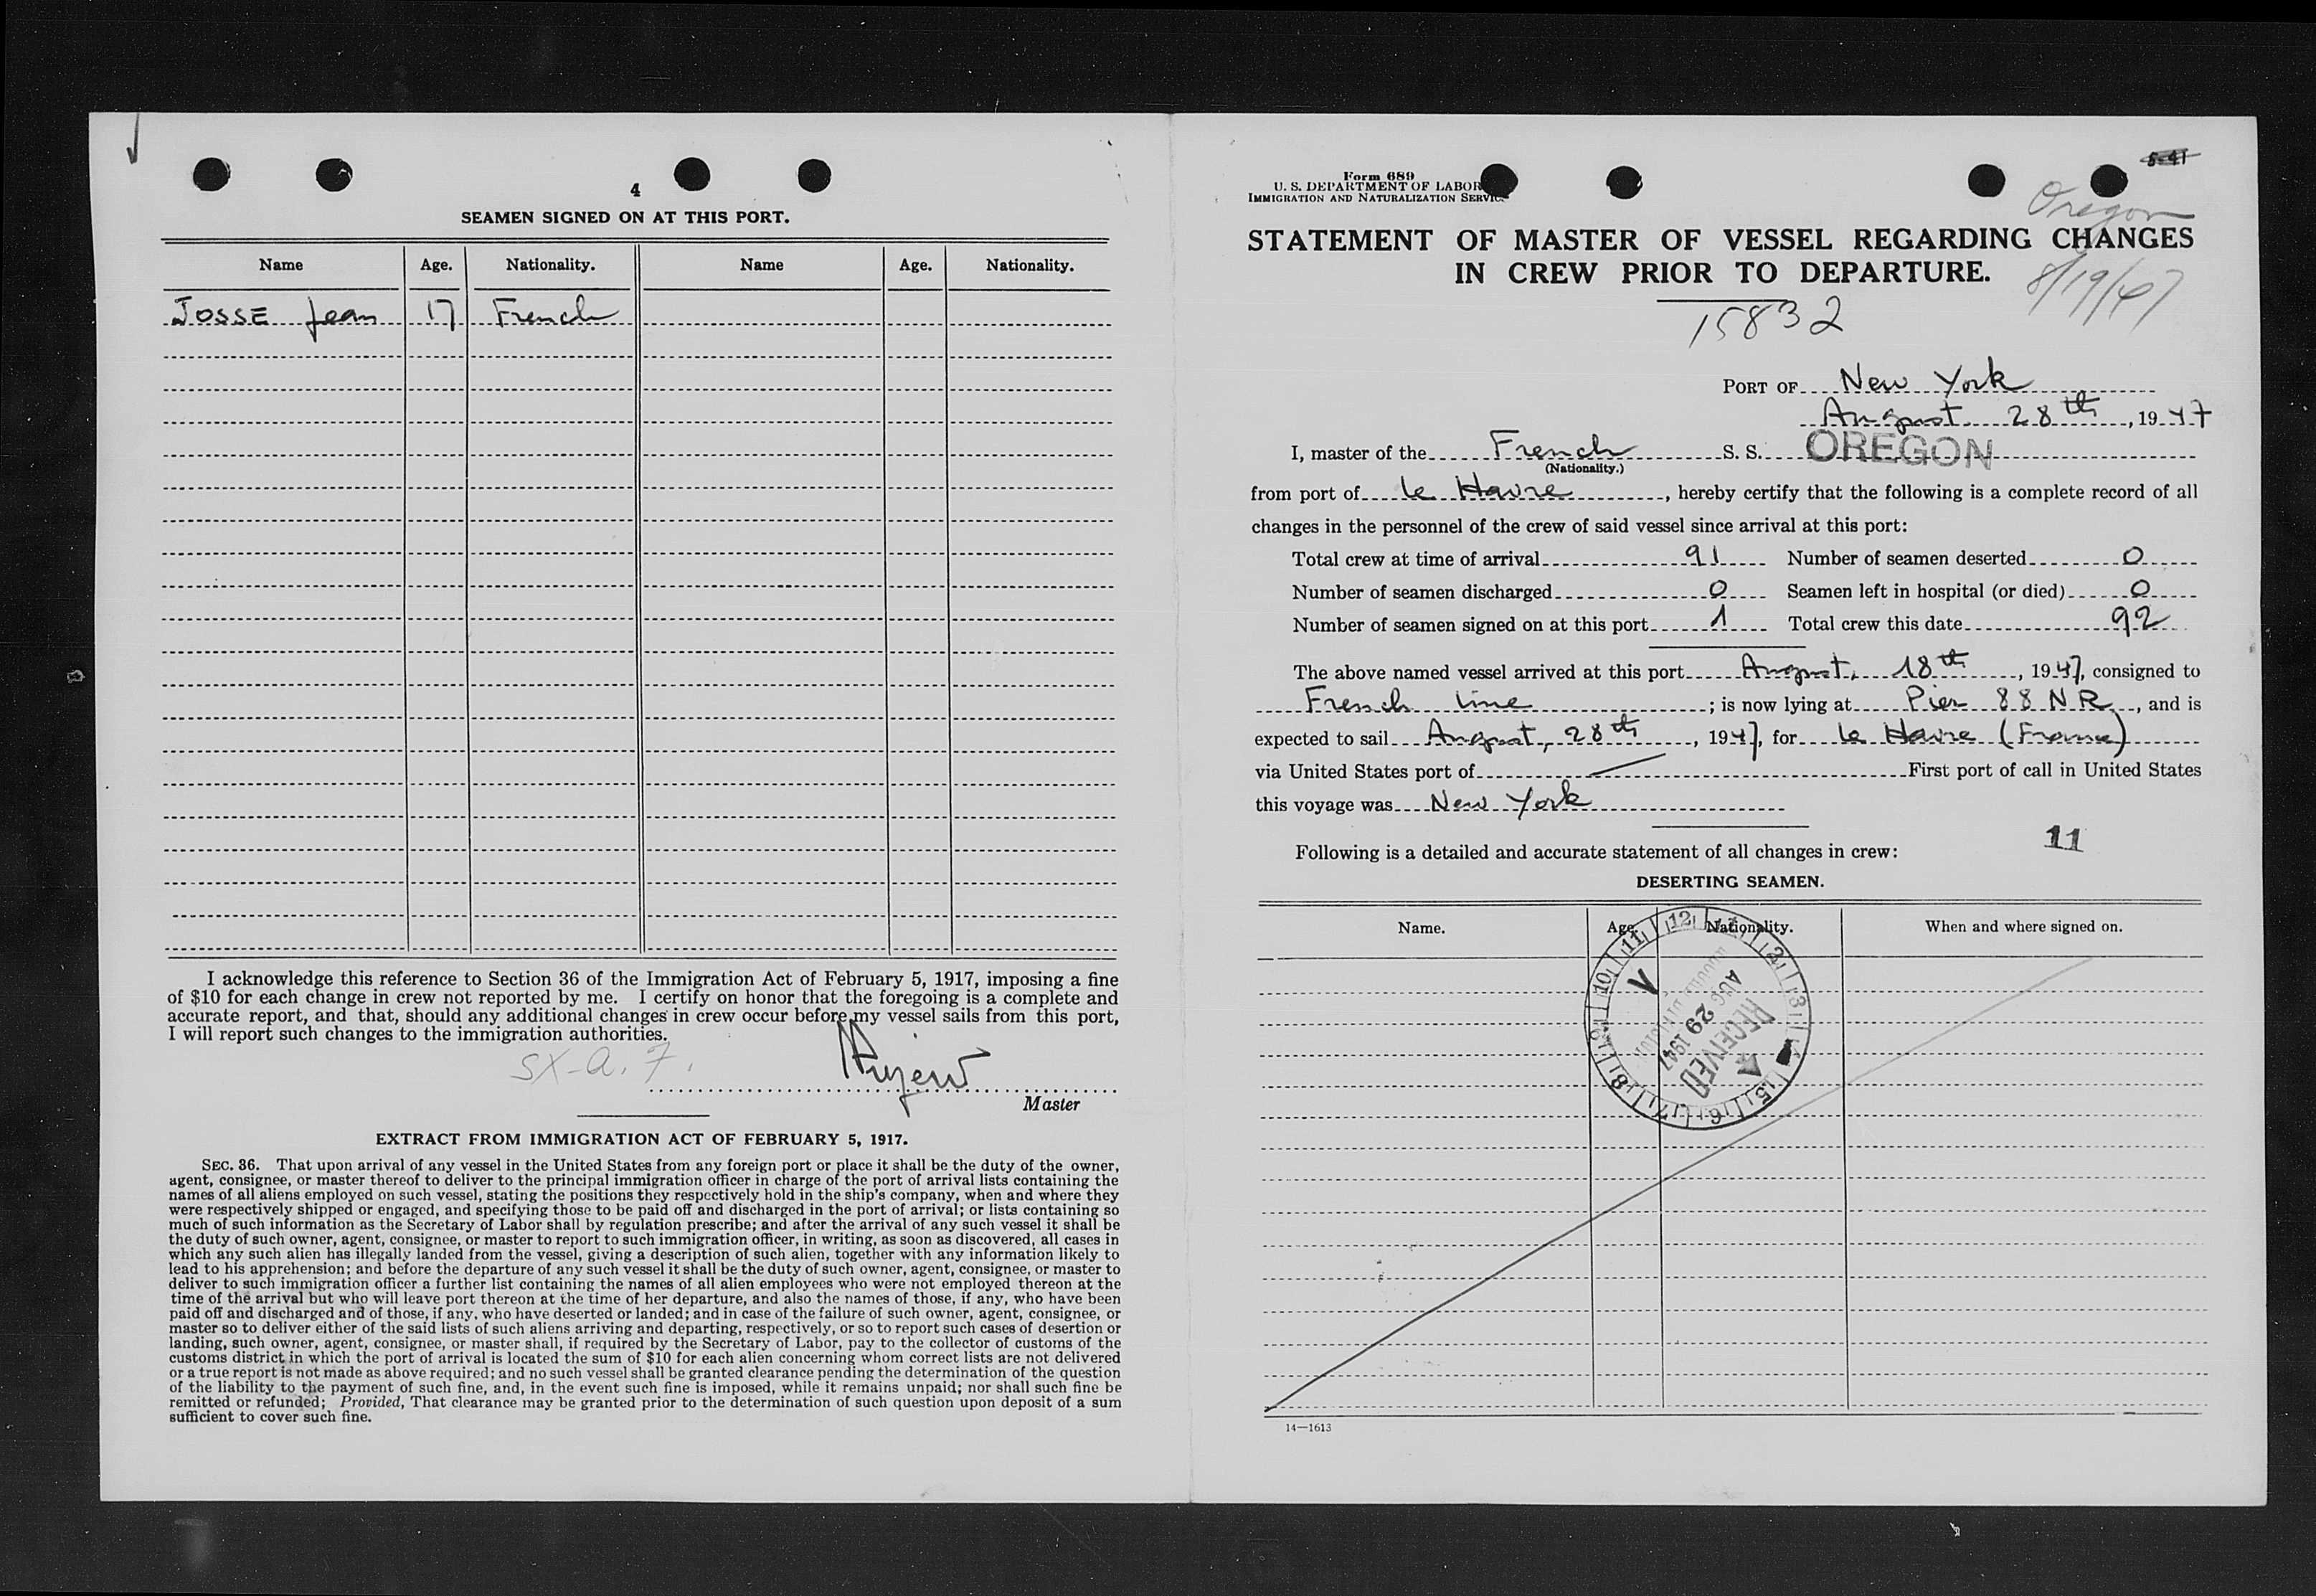 4
SEAMEN SIGNED ON AT THIS PORT.
Name Age. Nationality. Name Age. Nationality.
JOSSE Jean 17 French
I acknowledge this reference to Section 36 of the Immigration Act of February 5, 1917, imposing a fine
of $10 for each change in crew not reported by me. I certify on honor that the foregoing is a complete and
accurate report, and that, should any additional changes in crew occur before my vessel sails from this port,
I will report such changes to the immigration authorities.
SX-a. 7.
Master
EXTRACT FROM IMMIGRATION ACT OF FEBRUARY 5, 1917.
SEC. 36. That upon arrival of any vessel in the United States from any foreign port or place it shall be the duty of the owner,
agent, consignee, or master thereof to deliver to the principal immigration officer in charge of the port of arrival lists containing the
names of all aliens employed on such vessel, stating the positions they respectively hold in the ship's company, when and where they
were respectively shipped or engaged, and specifying those to be paid off and discharged in the port of arrival; or lists containing so
much of such information as the Secretary of Labor shall by regulation prescribe; and after the arrival of any such vessel it shall be
the duty of such owner, agent, consignee, or master to report to such immigration officer, in writing, as soon as discovered, all cases in
which any such alien has illegally landed from the vessel, giving a description of such alien, together with any information likely to
lead to his apprehension; and before the departure of any such vessel it shall be the duty of such owner, agent, consignee, or master to
deliver to such immigration officer a further list containing the names of all alien employees who were not employed thereon at the
time of the arrival but who will leave port thereon at the time of her departure, and also the names of those, if any, who have been
paid off and discharged and of those, if any, who have deserted or landed; and in case of the failure of such owner, agent, consignee, or
master so to deliver either of the said lists of such aliens arriving and departing, respectively, or so to report such cases of desertion or
landing, such owner, agent, consignee, or master shall, if required by the Secretary of Labor, pay to the collector of customs of the
customs district in which the port of arrival is located the sum of $10 for each alien concerning whom correct lists are not delivered
or a true report is not made as above required; and no such vessel shall be granted clearance pending the determination of the question
of the liability to the payment of such fine, and, in the event such fine is imposed, while it remains unpaid; nor shall such fine be
remitted or refunded; Provided, That clearance may be granted prior to the determination of such question upon deposit of a sum
sufficient to cover such fine.
5-41
Form 689
U. S. DEPARTMENT OF LABOR
IMMIGRATION AND NATURALIZATION SERVICE
Oregon
STATEMENT OF MASTER OF VESSEL REGARDING CHANGES
IN CREW PRIOR TO DEPARTURE.
8/19/47
15832
PORT OF New York
August 28th, 1947
I, master of the French S. S. OREGON
(Nationality.)
from port of le Havre, hereby certify that the following is a complete record of all
changes in the personnel of the crew of said vessel since arrival at this port:
Total crew at time of arrival 91 Number of seamen deserted 0
Number of seamen discharged 0 Seamen left in hospital (or died) 0
Number of seamen signed on at this port 1 Total crew this date 92
The above named vessel arrived at this port August, 18th, 1947, consigned to
French line; is now lying at Pier 88 N R, and is
expected to sail August, 28th, 1947, for le Havre (France)
via United States port of First port of call in United States
this voyage was New York
11
Following is a detailed and accurate statement of all changes in crew:
DESERTING SEAMEN.
Name. Age. Nationality. When and where signed on.
12 1 2 3 4 5 6 7 8 9 10 11
RECEIVED
AUG 29 1947
14—1613